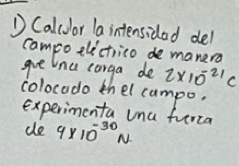 1) Calculor la intensidad del
campo eléctrico de manera
que una carga de 2x10⁻²¹ C
colocado en el campo,
experimenta una fuerza
de 9x10⁻³⁰ N